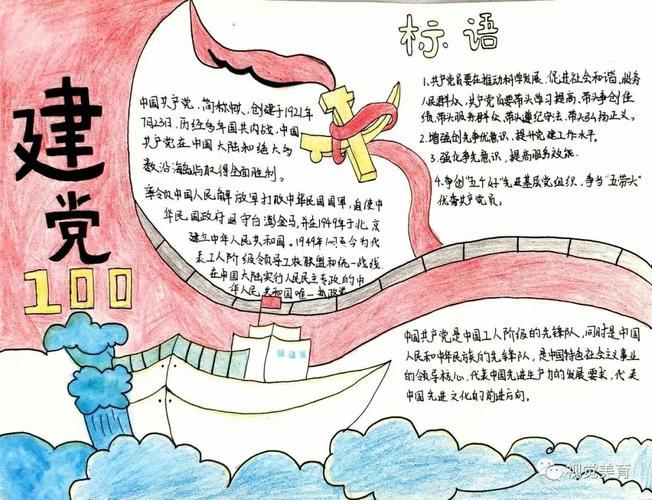 建党
100
中国共产党，简称中共，创建于1921年
7月23日，历经多年国共内战，中国
共产党在中国大陆和绝大多
数沿海岛屿取得全面胜利。
率领中国人民解放军打败中华民国国军，迫使中
华民国政府退守台澎金马，并在1949年于北京
建立中华人民共和国。1949年间至今为代
表工人阶级领导工农联盟和统一战线
在中国大陆实行人民民主专政的中
华人民共和国唯一执政党
标语
1.共产党员要在推动科学发展、促进社会和谐、服务
人民群众、共产党员要带头学习提高、带头争创佳
绩、带头服务群众、带头遵纪守法、带头弘扬正义。
2.增强创先争优意识，提升党建工作水平。
3.强化争先意识，提高服务效能.
4.争创"五个好"先进基层党组织，争当"五带头"
优秀共产党员。
中国共产党是中国工人阶级的先锋队，同时是中国
人民和中华民族的先锋队，是中国特色社会主义事业
的领导核心，代表中国先进生产力的发展要求，代表
中国先进文化的前进方向。
视觉美育